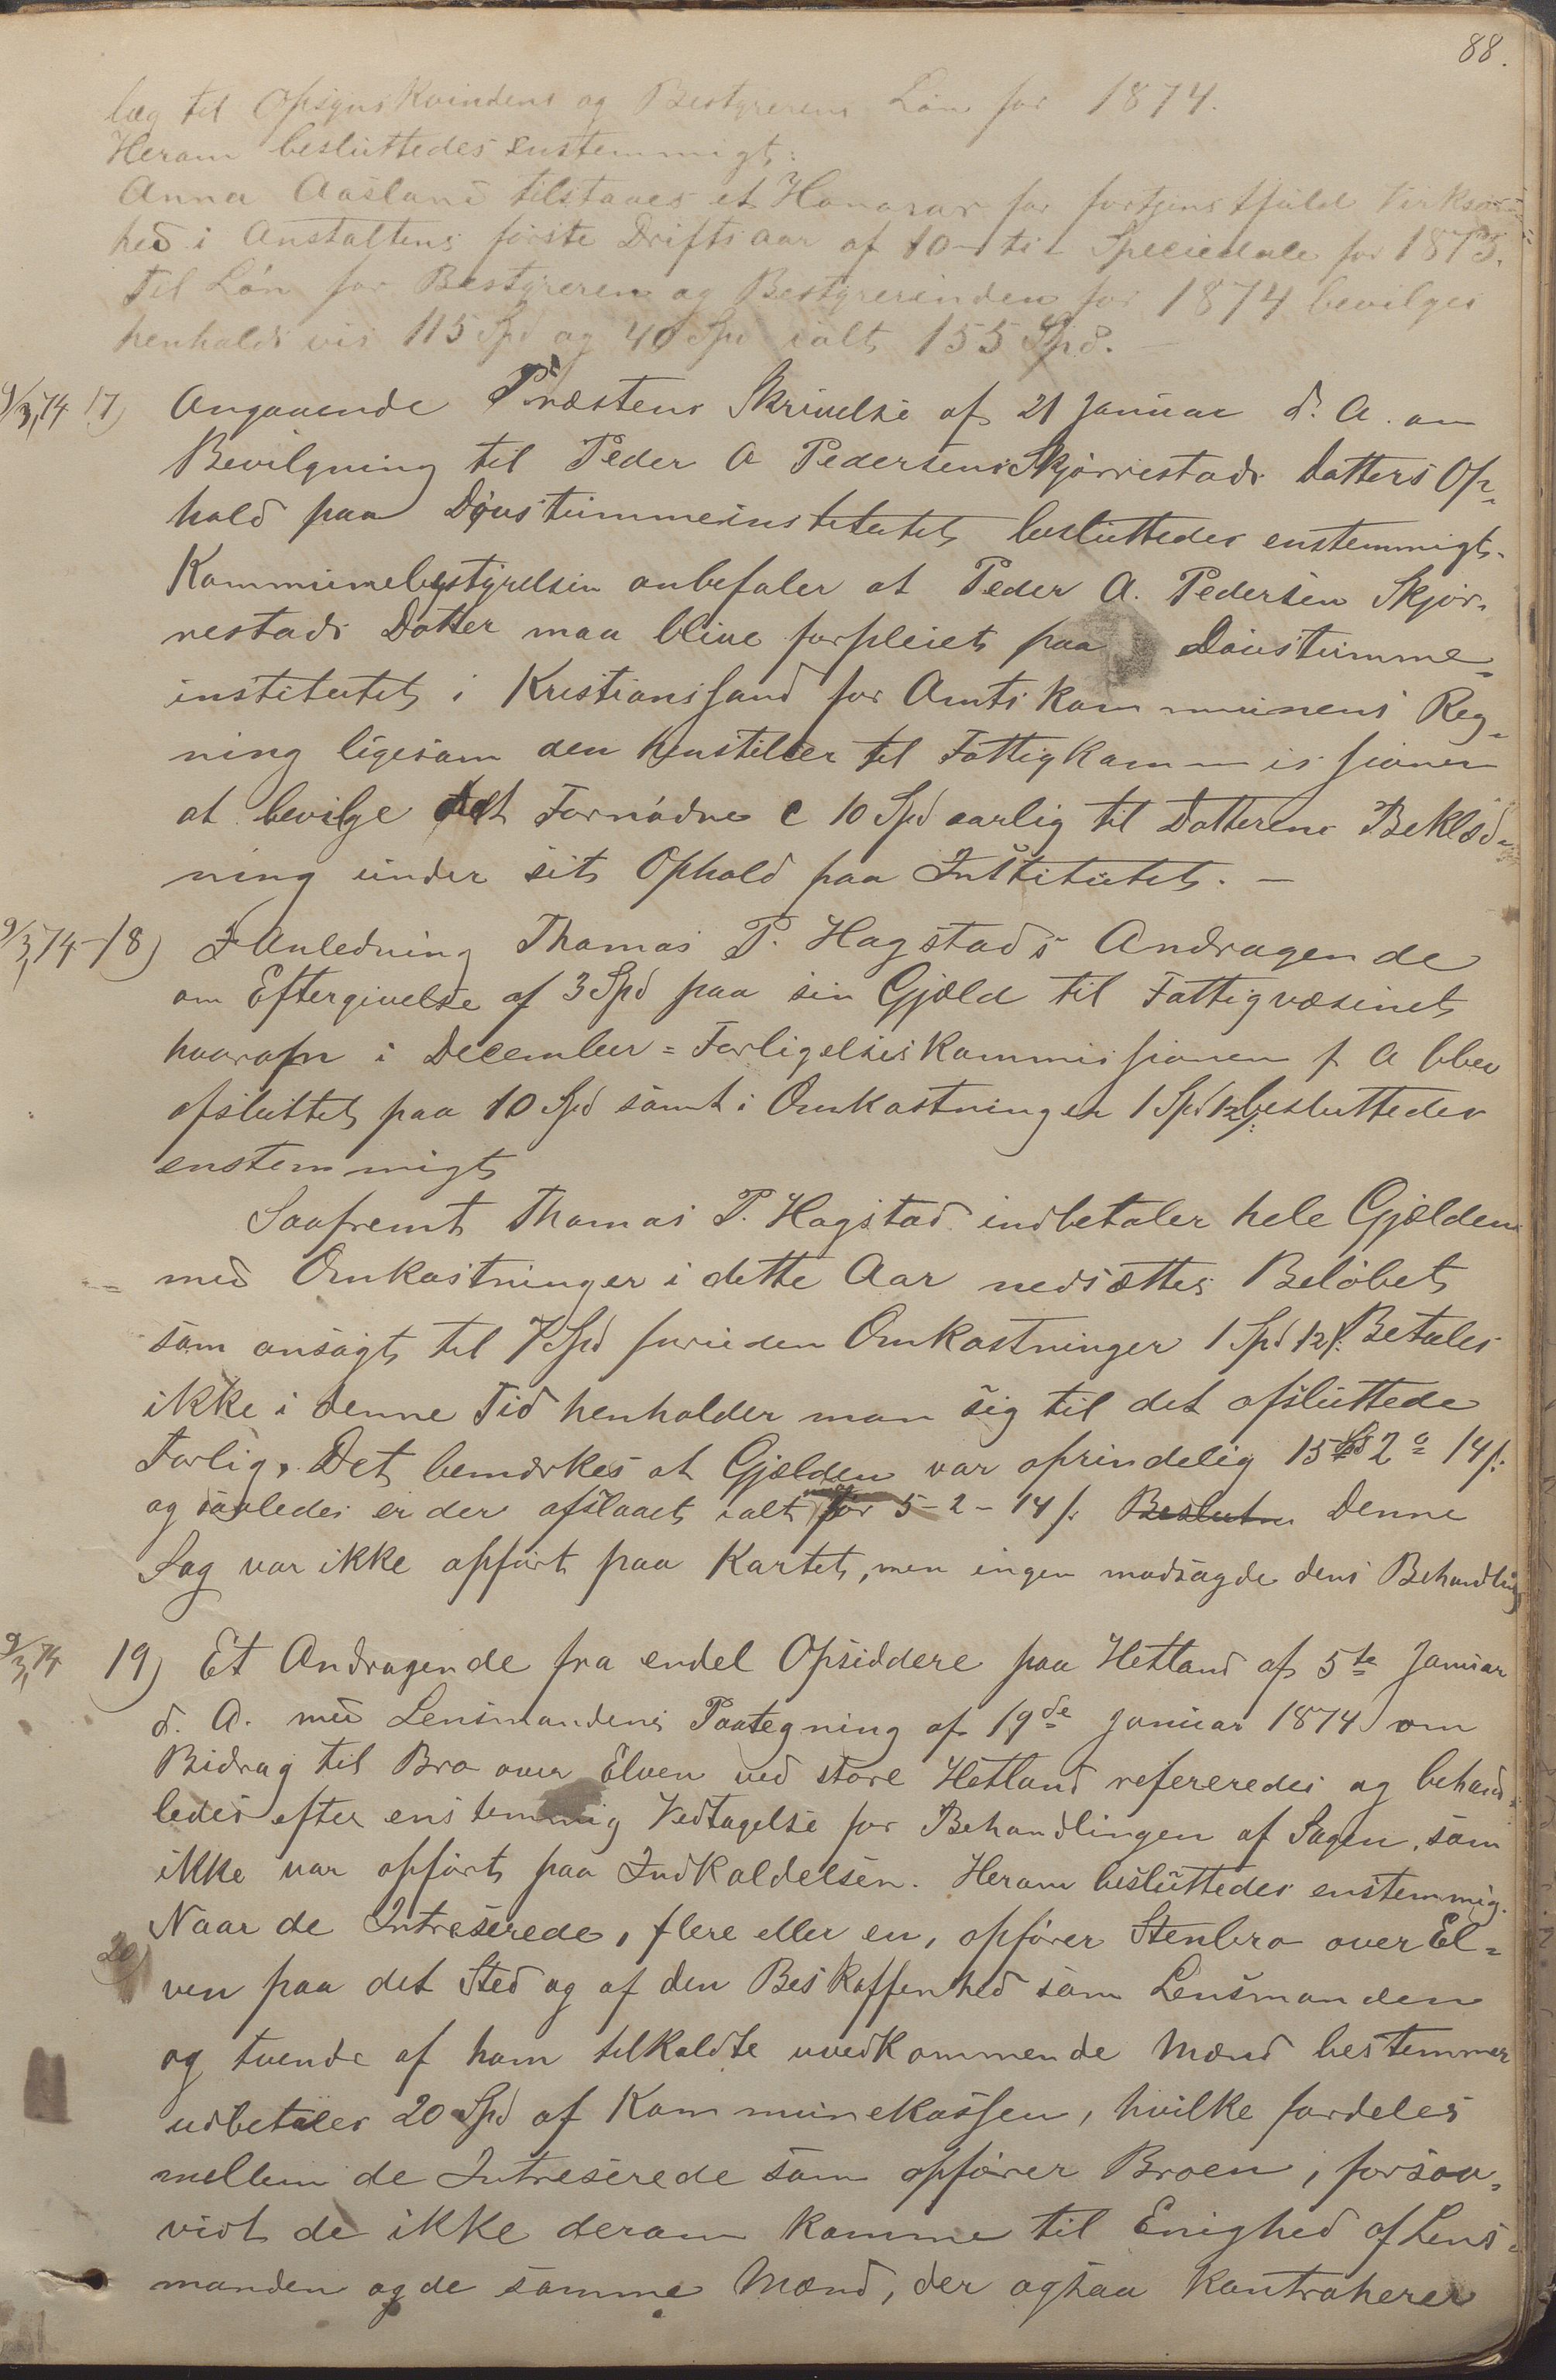 88.
læg til Opsynskvindens og Bestyrerens Løn for 1874.
Herom besluttedes enstemmigt:
Anna Aasland tilstaaes et Honorar for fortjenstfuld Virksom-
hed i Anstaltens første Driftsaar af 10 - ti - Speciedale for 1873.
Til Løn for Bestyreren og Bestyrerinden for 1874 bevilges
henholdsvis 115 Spd og 40 Spd ialt 155 Spd. -
9/3,74 17) Angaaende Præstens Skrivelse af 21 Januar d. A. om
Bevilgning til Peder A Pedersens Skjørrestads Datters Op-
hold paa Døvstummeinstitutet besluttedes enstemmigt.
Kommunebestyrelsen anbefaler at Peder A. Pedersen Skjør-
restads Datter maa blive forpleiet paa Døvstumme-
institutet i Kristianssand for Amtskommunens Reg-
ning ligesom den henstiller til Fattigkommissionen
at bevilge det Fornødne c 10 Spd aarlig til Datterens Beklæd-
ning under sit Ophold paa Institutet. -
9/3,74 - 18) I Anledning Thomas P. Hagstads Andragende
om Eftergivelse af 3 Spd paa sin Gjæld til Fattigvæsenet
hvorom i December = Forligelseskommissionen f. A blev
afsluttet paa 10 Spd samt i Omkostninger 1 Spd 12 s: besluttedes
enstemmigt
Saafremt Thomas P. Hagstad indbetaler hele Gjælden
med Omkostninger i dette Aar nedsættes Beløbet
som ansøgt til 7 Spd foruden Omkostninger 1 Spd 12 s: Betales
ikke i denne Tid henholder man sig til det afsluttede
Forlig. Det bemærkes at Gjælden var oprindelig 15 Spd 2 o 14 s:
og saaledes er der afslaaet ialt for 5 - 2 - 14 s: Beslutn Denne
Sag var ikke opført paa Kartet, men ingen modsagde dens Behandling
9/3,74 19) Et Andragende fra endel Opsiddere paa Hetland af 5te Januar
d. A. med Lensmandens Paategning af 19de Januar 1874 om
Bidrag til Bro over Elven ved store Hetland refereredes og behand-
ledes efter enstemmig Vedtagelse for Behandlingen af Sagen, som
ikke var opført paa Indkaldelsen. Herom besluttedes enstemmig.
Naar de Intreserede, flere eller en, opfører Stenbro over El=
20) ven paa det Sted og af den Beskaffenhed som Lensmanden
og tvende af ham tilkaldte uvedkommende Mænd bestemmer
udbetales 20 Spd af Kommunekassen, hvilke fordeles
mellem de Intreserede som opfører Broen, forsaa-
vidt de ikke derom komme til Enighed af Lens-
manden og de samme Mænd, der ogsaa kontraherer